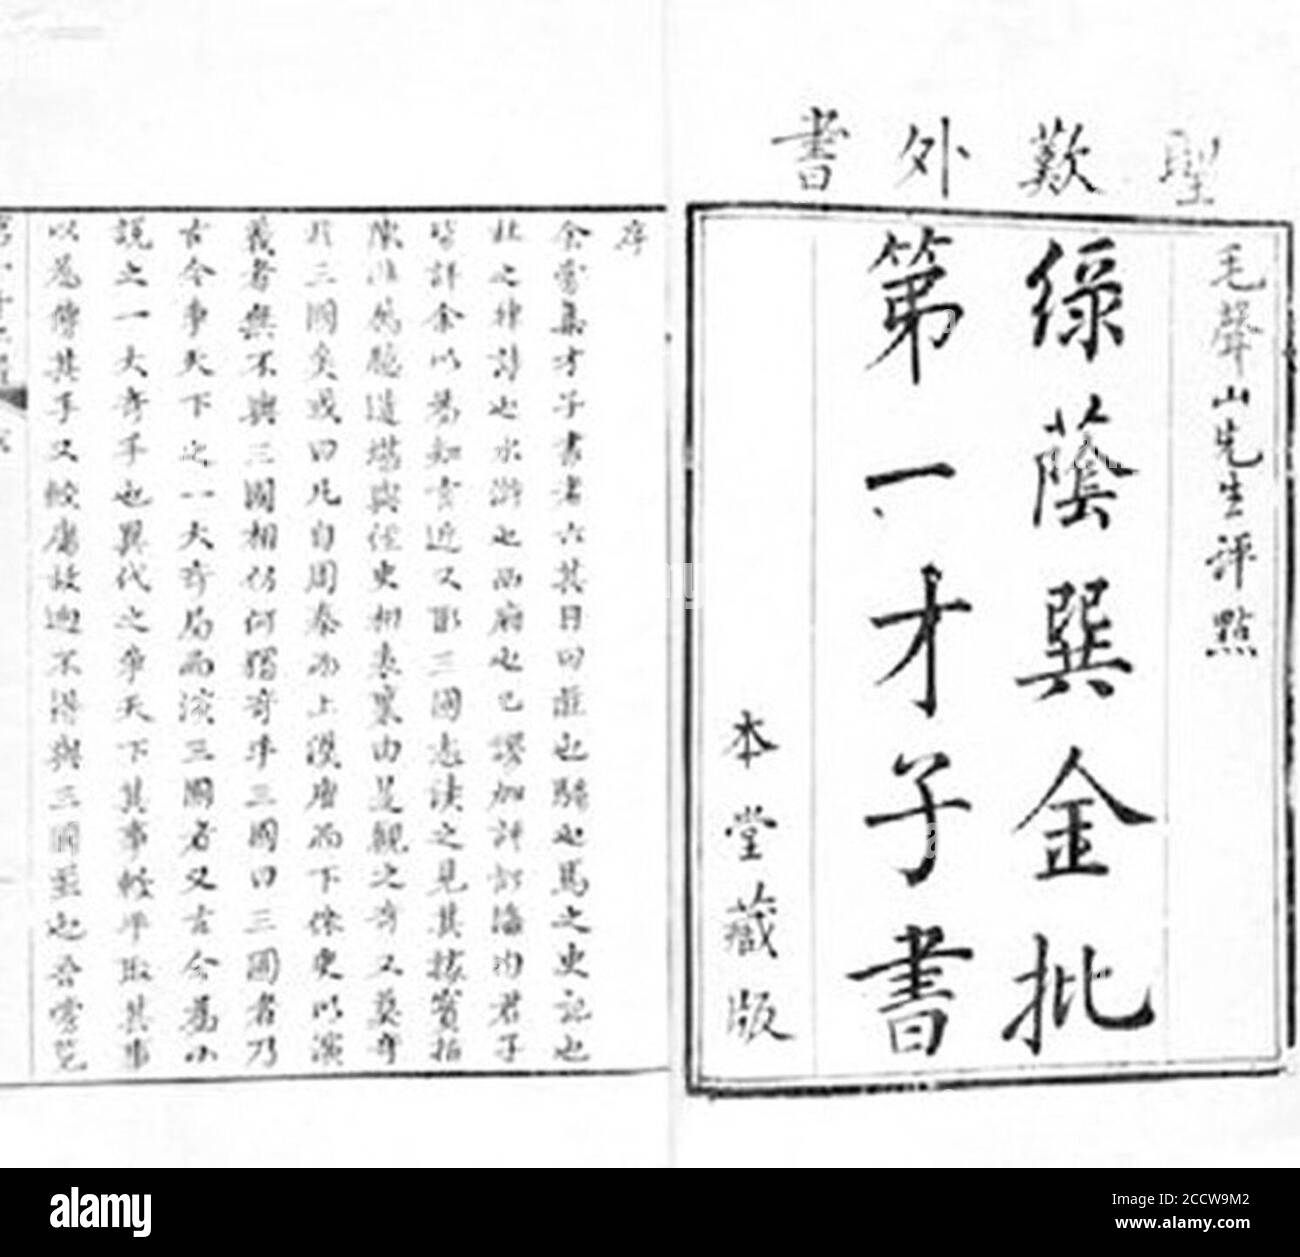 聖歎外書
毛聲山先生評點
綠蔭巽金批
第一才子書
本堂藏版
序
余嘗集才子書者六其目曰莊也騷也馬之史記也
杜之律詩也水滸也西廂也已謬加評訂海內君子
皆許余以為知言近又取三國志讀之見其據實指
陳非屬臆造堪與經史相表裏由是觀之奇又莫奇
於三國矣或曰凡自周秦而上漢唐而下依史以演
義者無不與三國相仿何獨奇乎三國曰三國者乃
古今爭天下之一大奇局而演三國者又古今為小
說之一大奇手也異代之爭天下其事較平取其事
以為傳其手又較庸故迥不得與三國並也吾嘗覽
alamy
Image ID: 2CCW9M2
www.alamy.com